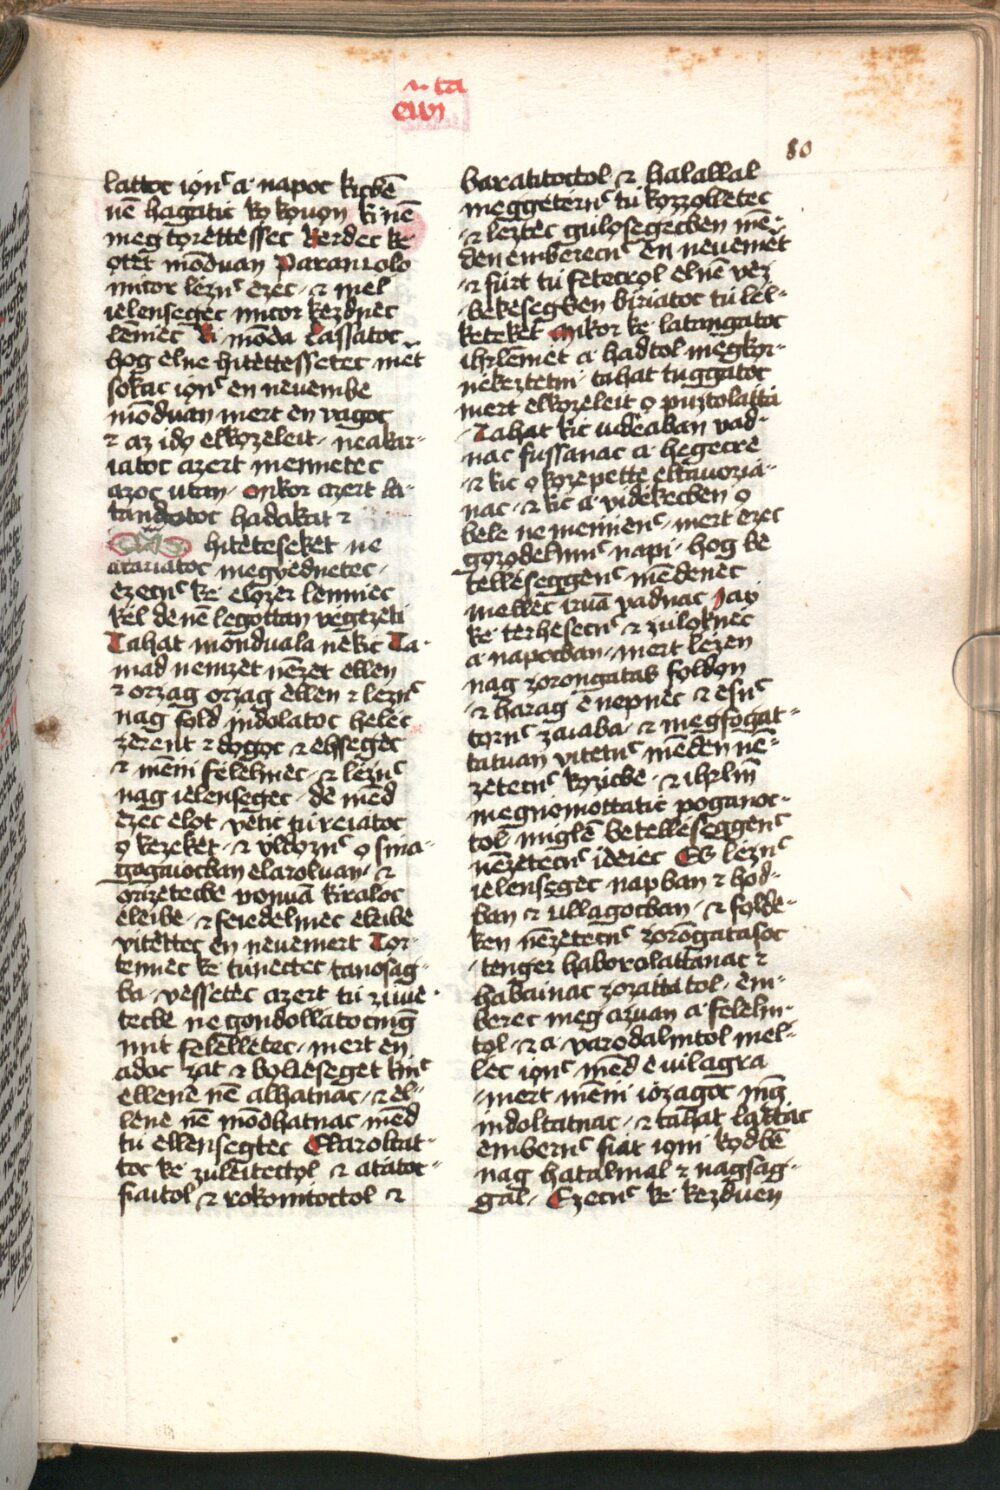 80
lattoc ionc̄ a· napoc kicbē
nē hagatic kǫ kǫuǫn ki nē
meg tǫrettessec Kerdec ke
ǫtèt mōduan Paranĉolo
micor lèznc̄ ezec· ꞇ mèl
ièlensegèc micor kezdnèc
lēnièc Ki mōda Lassatoc
hog elne hitèttessetec mēt
sokac ionc̄ en neuembe
mōduan mert èn vagoc
ꞇ az idǫ elkǫzèleit· neakar-
iatoc azert mennetec
azoc utan· Mikor azert la-
tandotoc hadakat ꞇ
hitèteseket ne
akariatoc megyednetec·
ezecnc̄ ke· elǫzer lenniec
kèl de nē legottan vegezeti
Tahat mōduala nekic Ta-
mad nemzet nēzet ellen
ꞇ orzag orzag èllen ꞇ lèznc̄
nag fǫld indolatoc helèc
zerent ꞇ dǫgǫc ꞇ ehsegèc
ꞇ mēni felelmèc· ꞇ lèznc̄
nag ielensegèc· de mēd
ezec elǫt vètic tu reiatoc
ǫ kezeket· ꞇ vldǫznc̄ ǫ sina-
gogaiocban elaroluan· ꞇ
ǫrizetecbe vonuā kiraloc
eleibe· ꞇ feiedelmec eleibe
vitèttec en neuemert Tor-
tennec ke· tunectec tanosag-
ba· vèssetec azert tu ziue-
tecbe ne gondollatoc mḡ
mit felellètec· mert en
adoc zat ꞇ bǫlceseget kinc̄
ellenè nē alhatnac· ꞇ el-
lene nē mōdhatnac mēd
tu ellensegtec Elaroltat-
toc ke· zuleitectǫl ꞇ atatoc-
fiaitol ꞇ rokonitoctol ꞇ
baratitoctol ꞇ halallal
meggètèrnc̄ tu kǫzzǫlletec
ꞇ lèztec gúlǫsegecben mē-
den emberecnc̄ en neuemēt
ꞇ fúrt tu feiecrǫl el nē vez
bekesegben biriatoc tu lèl-
keteket Mikor ke· latangatoc
ihrlēmet a· hadtol megkǫr-
nekeztetni· tahat tuggatoc
mert elkǫzèleit ǫ puztolatta
Tahat kic iudeaban vad-
nac fussanac a· hegecre
ꞇ kic ǫ kǫzepette eltauozia-
nac· ꞇ kic a· videkecben ǫ
bele ne meniènc̄· mert ezec
napi· hog be
tèllèseggenc̄ mēdenec
mèllec irua vadnac Jay
ke· terhesecnc̄ ꞇ zulǫknèc
a· napocban· mert lèzen
nag zorongatas fǫldǫn
ꞇ harag è nepnèc ꞇ esnc̄
tǫrnc̄ zaiaba· ꞇ megfogat-
tatuan vitètnc̄ mēden nē-
zetecnc̄ kǫzicbè· ꞇ ihrlm̄
megniomottatic poganoc-
tol· miglē betellèseggenc̄
nēzetecnc̄ ideiec Es lèznc̄
ielensegèc napban ꞇ hod-
ban ꞇ ꞇ fǫldè-
ken nēzetecnc̄ zorōgatasoc
tenger haborolattanac ꞇ
habainac zozatta tol· em-
berec meg azuan a· felelm-
tǫl· ꞇ a· varodalmtol mel-
lec ionc̄ mēd è vilagra
mert mēni iozagoc mḡ
indoltatnac· ꞇ tahat
embernc̄ fiat iǫni kǫdbē
nag hatalmal ꞇ nagsag-
gal· Ezecnc̄ ke· kezduen